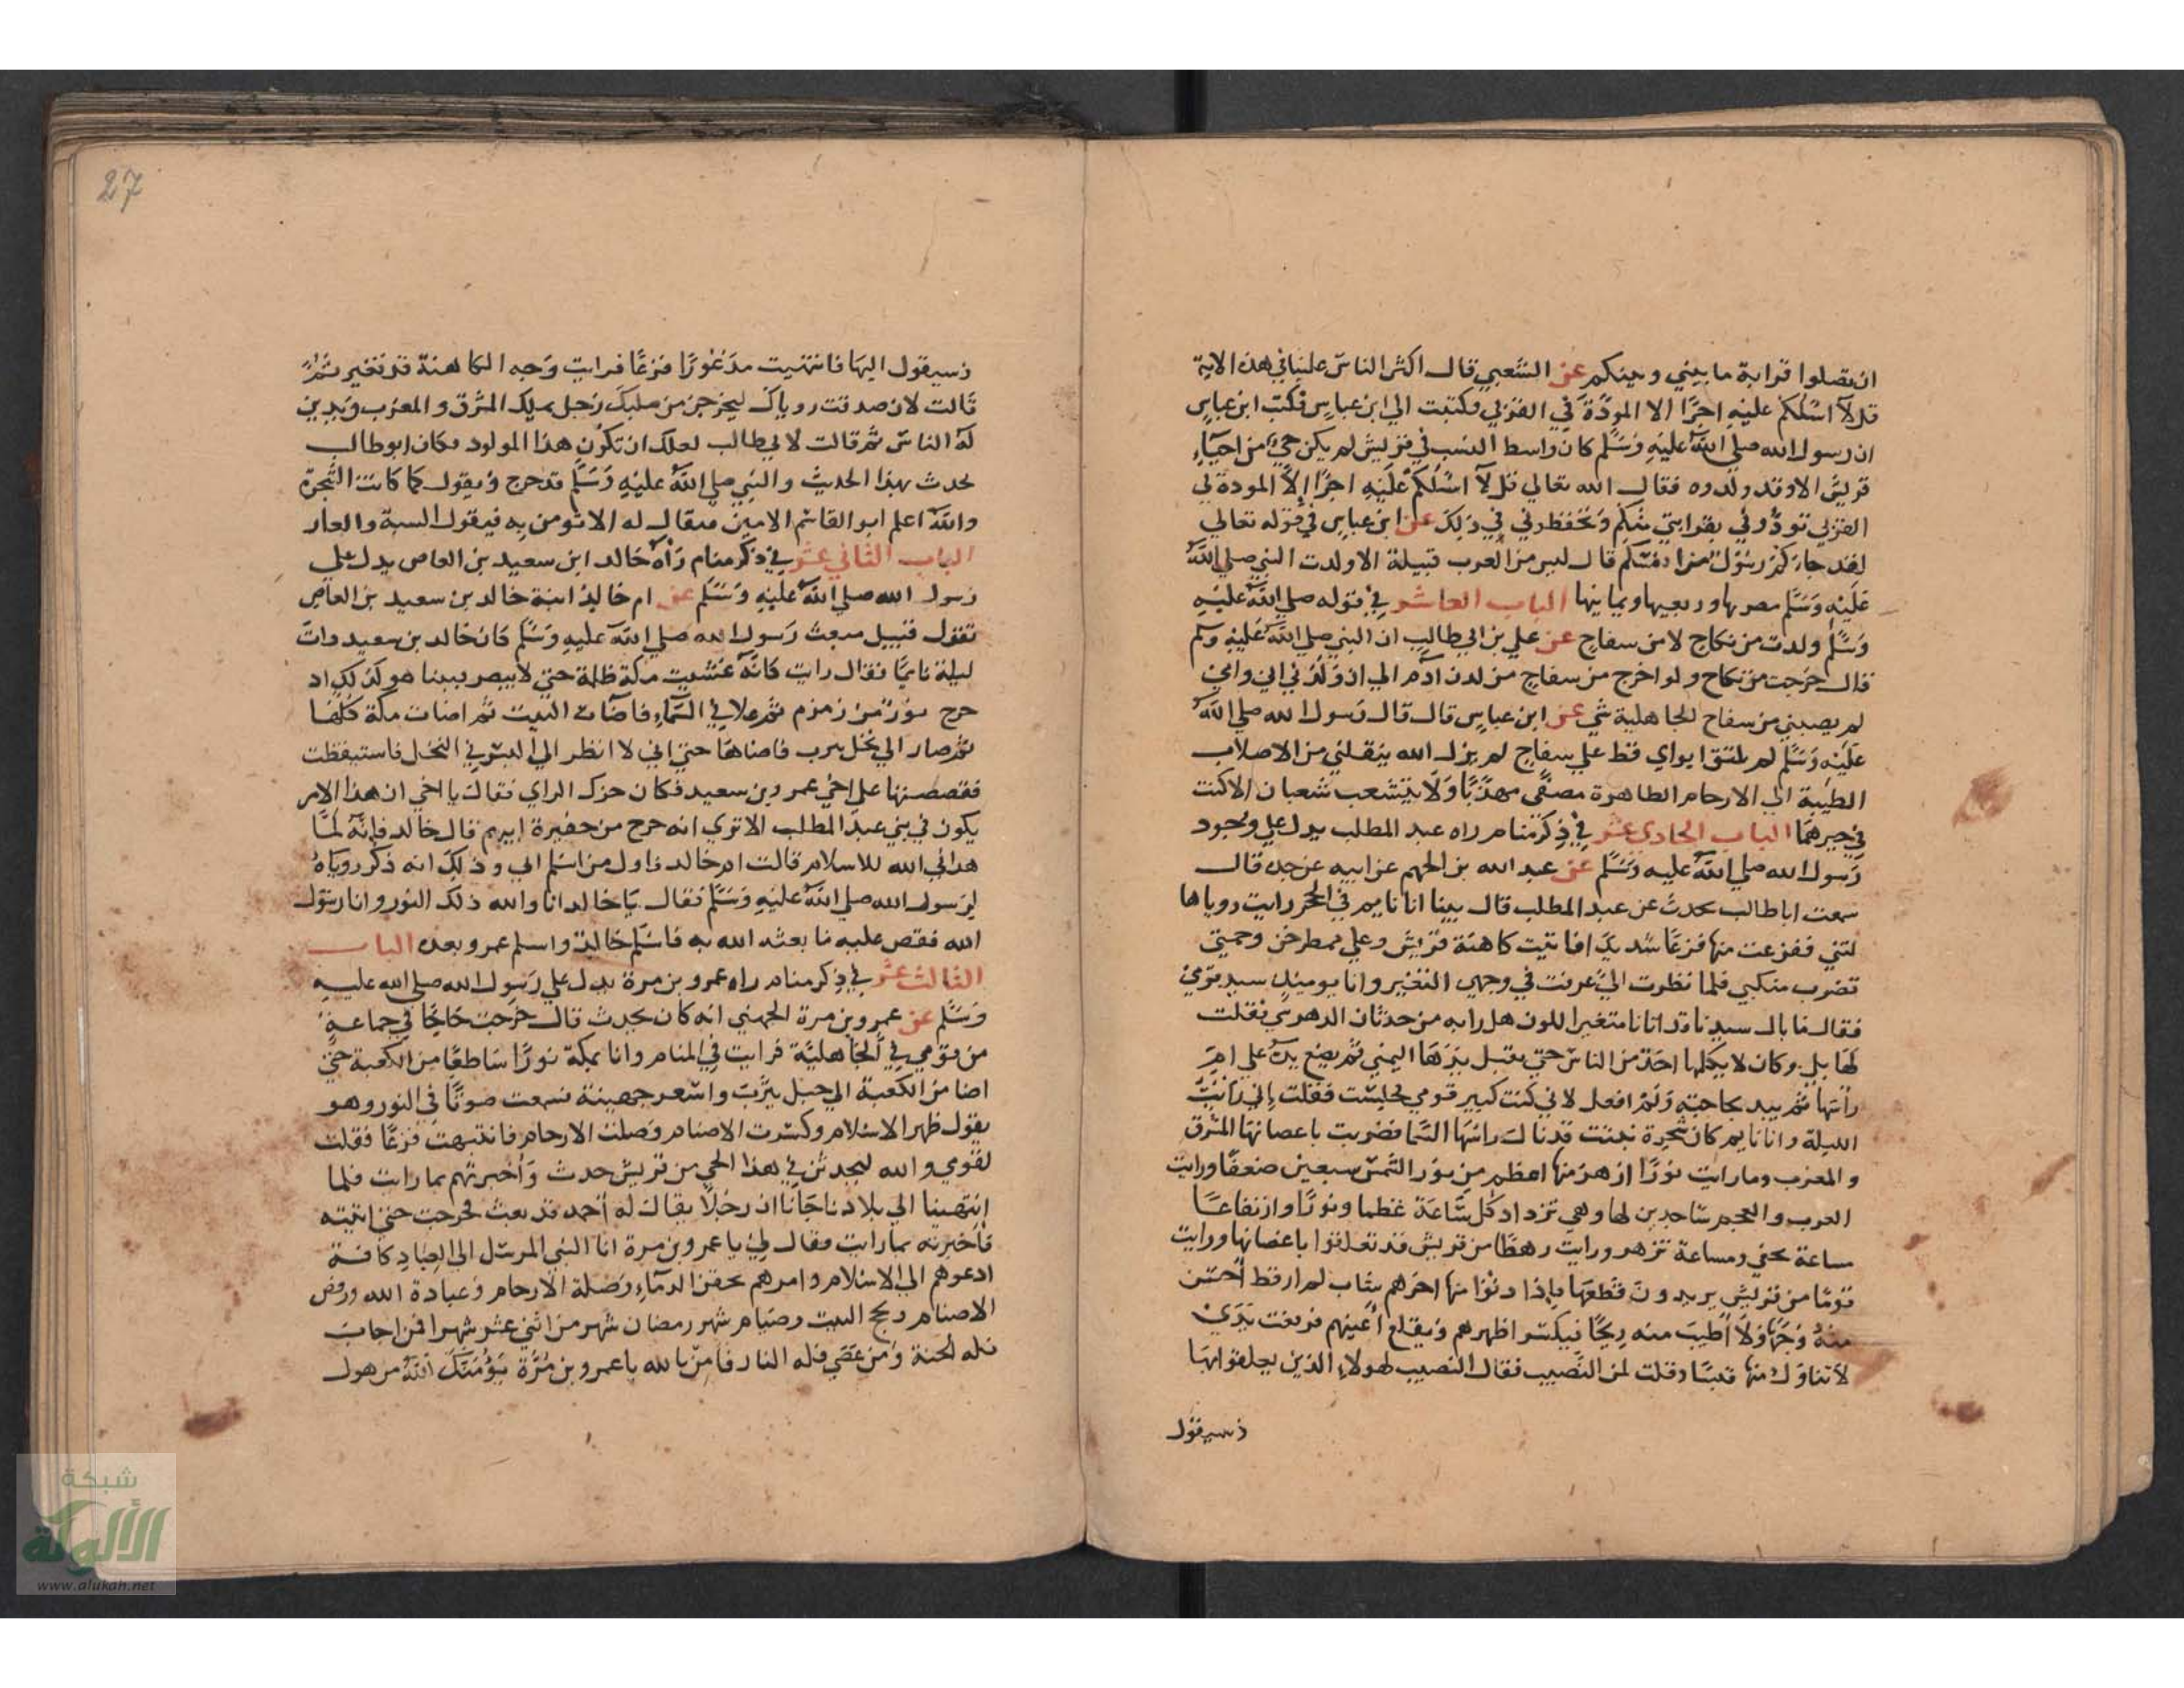 ان تصلوا قرابة ما بيني وبينكم عن الشعبي قال اكثر الناس علينا في هذه الاية
قل لا اسئلكم عليه اجرا الا المودة في القربي فكتبت الي ابن عباس فكتب ابن عباس
ان رسول الله صلي الله عليه وسلم كان واسط النسب في قريش لم يكن حي من احياء
قريش الا وقد ولدوه فقال الله تعالي قل لا اسئلكم عليه اجرا الا المودة في
القربي تودوني بقرابتي منكم وتحفظوني في ذلك عن ابن عباس في قوله تعالي
لقد جاءكم رسول من انفسكم قال ليس من العرب قبيلة الا ولدت النبي صلي الله
عليه وسلم مضرها وربعيها ويمانيها الباب العاشر في قوله صلي الله عليه
وسلم ولدت من نكاح لا من سفاح عن علي بن ابي طالب ان النبي صلي الله عليه وسلم
قال خرجت من نكاح ولم اخرج من سفاح من لدن ادم الي ان ولدني ابي وامي
لم يصبني من سفاح الجاهلية شي عن ابن عباس قال قال رسول الله صلي الله
عليه وسلم لم يلتق ابواي قط علي سفاح لم يزل الله ينقلني من الاصلاب
الطيبة الي الارحام الطاهرة مصفي مهذبا ولا يتشعب شعبان الا كنت
في خيرهما الباب الحادي عشر في ذكر منام راه عبد المطلب يدل علي وجود
رسول الله صلي الله عليه وسلم عن عبد الله بن الجهم عن ابيه عن جده قال
سمعت ابا طالب يحدث عن عبد المطلب قال بينا انا نايم في الحجر رايت رويا ها
لتني ففزعت منها فزعا شديدا فاتيت كاهنة قريش وعلي مطرف خز وجمتي
تضرب منكبي فلما نظرت الي عرفت في وجهي التغير وانا يوميذ سيد قومي
فقال ما بال سيدنا قد اتانا متغير اللون هل رابه من حدثان الدهر شي فقلت
لها بلي وكان لا يكلمها احد من الناس حتي يقبل يدها اليمني ثم يضع يده علي ام
راسها ثم يبد بحاجته ولم افعل لاني كنت كبير قومي فجلست فقلت اني رايت
الليلة وانا نايم كان شجرة نبتت قد نال راسها السما وضربت باغصانها المشرق
والمغرب وما رايت نورا ازهر منها اعظم من نور الشمس سبعين ضعفا ورايت
العرب والعجم ساجدين لها وهي تزداد كل ساعة عظما ونورا وارتفاعا
ساعة تخفي وساعة تزهر ورايت رهطا من قريش قد تعلقوا باغصانها ورايت
قوما من قريش يريدون قطعها فاذا دنوا منها اخرهم شاب لم ار قط احسن
منه وجها ولا اطيب منه ريحا فيكسر اظهرهم ويقلع اعينهم فرفعت يدي
لاتناول منها قبسا وقلت لمن النصيب فقال النصيب لهولاء الذين تعلقوا بها
وسبقوك
27
وسبقوك اليها فانتهيت مذعورا فزعا فرايت وجه الكاهنة قد تغير ثم
قالت لان صدقت روياك ليخرجن من صلبك رجل يملك المشرق والمغرب ويدين
له الناس ثم قالت لابي طالب لعلك ان تكون هذا المولود فكان ابو طالب
يحدث بهذا الحديث والنبي صلي الله عليه وسلم قد خرج ويقول كما كانت الشجرة
والله اعلم ابو القاسم الامين فيقال له الا تومن به فيقول السبة والعار
الباب الثاني عشر في ذكر منام راه خالد ابن سعيد بن العاص يدل علي
رسول الله صلي الله عليه وسلم عن ام خالد ابنة خالد بن سعيد بن العاص
تقول قبيل مبعث رسول الله صلي الله عليه وسلم كان خالد بن سعيد ذات
ليلة نايما فقال رايت كانه غشيت مكة ظلمة حتي لا يبصر بينا هو كذلك اذ
خرج نور من زمزم ثم علا في السماء فاضات البيت ثم اضات مكة كلها
ثم صار الي نخل يثرب فاضاها حتي اني لا انظر الي البسر في النخل فاستيقظت
فقصصتها علي اخي عمرو بن سعيد فكان جزل الراي فقال يا اخي ان هذا الامر
يكون في بني عبد المطلب الا تري انه خرج من حفيرة ابيهم قال خالد فانه لما
هداني الله للاسلام قالت ام خالد فاول من اسلم ابي وذلك انه ذكر روياه
لرسول الله صلي الله عليه وسلم فقال يا خالد انا والله ذلك النور وانا رسول
الله فقص عليه ما بعثه الله به فاسلم خالد واسلم عمرو بعده الباب
الثالث عشر في ذكر منام راه عمرو بن مرة يدل علي رسول الله صلي الله عليه
وسلم عن عمرو بن مرة الجهني انه كان يحدث قال خرجت حاجا في جماعة
من قومي في الجاهلية فرايت في المنام وانا بمكة نورا ساطعا من الكعبة حتي
اضا من الكعبة الي جبل يثرب واشعر جهينة فسمعت صوتا في النور وهو
يقول ظهر الاسلام وكسرت الاصنام وصلت الارحام فانتبهت فزعا فقلت
لقومي والله ليحدثن في هذا الحي من قريش حدث واخبرتهم بما رايت فلما
انتهينا الي بلادنا جانا ان رجلا يقال له احمد قد بعث فخرجت حتي اتيته
فاخبرته بما رايت فقال لي يا عمرو بن مرة انا النبي المرسل الي العباد كافة
ادعوهم الي الاسلام وامرهم بحقن الدماء وصلة الارحام وعبادة الله ورفض
الاصنام وحج البيت وصيام شهر رمضان شهر من اثني عشر شهرا فمن اجاب
فله الجنة ومن عصي فله النار فامن بالله يا عمرو بن مرة يؤمنك الله من هول
شبكة
الألوكة
www.alukah.net